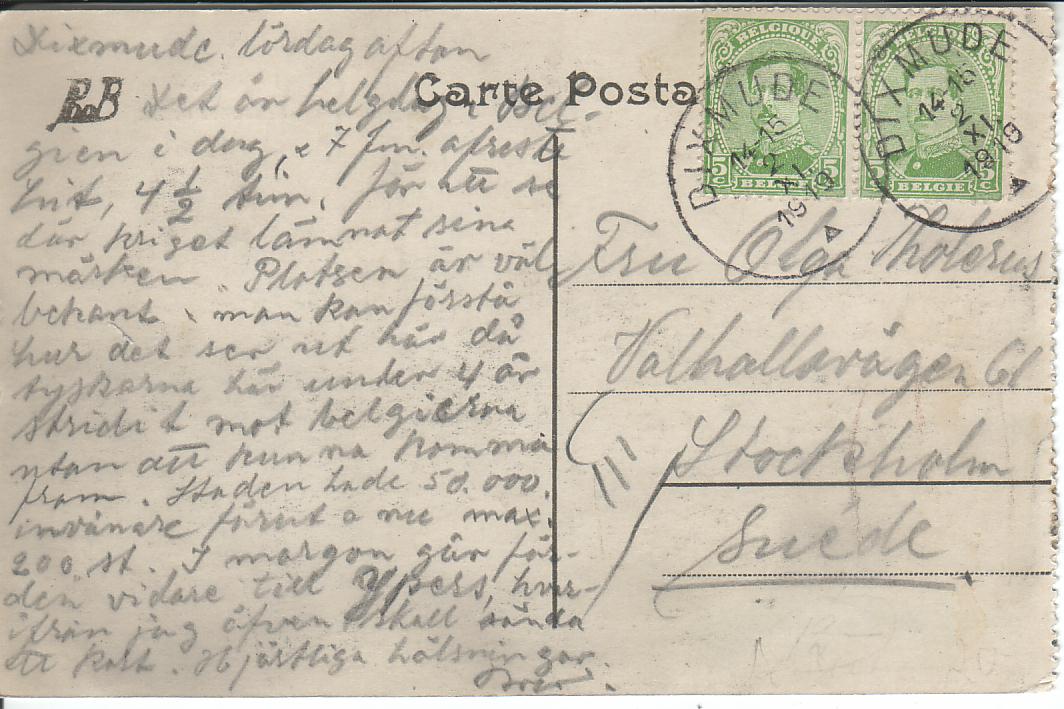 Dixmude. lördag afton
Det är helgdag i Bel-
gien i dag, o 7 fm. afreste
hit, 4 1/2 tim, för att se
där kriget lämnat sina
märken. Platsen är väl
bekant o man kan förstå
hur det ser ut här då
tyskarna här under 4 år
stridit mot belgierna
utan att kunna komma
fram. Staden hade 50.000.
invånare förut o nu max.
200 st. I morgon går fär-
den vidare till Ypers, hvar-
ifrån jag äfven skall sända
ett kort. Hjärtliga hälsningar.
Carte Posta
BELGIQUE
5 5
BELGIË C
BELGIQUE
5 5
BELGIË C
DIXMUDE
14-15
2
XI
1919
DIXMUDE
14-15
2
XI
1919
Fru Olga
Valhallavägen 61
Stockholm
Suède